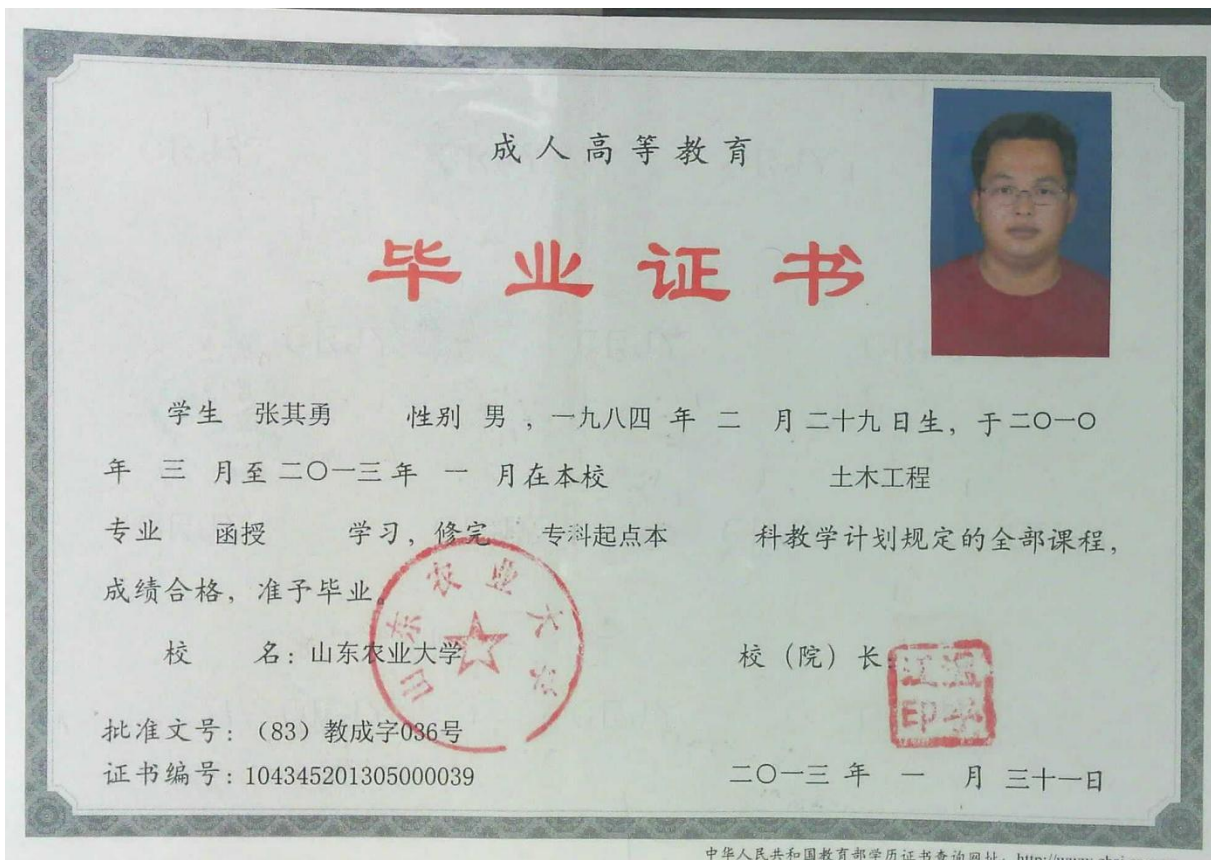 成人高等教育
毕业证书
学生 张其勇 性别 男 ，一九八四 年 二 月 二十九 日生，于 二〇一〇
年 三 月至 二〇一三 年 一 月在本校 土木工程
专业 函授 学习，修完 专科起点本 科教学计划规定的全部课程，
成绩合格，准予毕业。
校 名：山东农业大学 校（院）长：
山东农业大学
批准文号：（83）教成字036号
证书编号：104345201305000039 二〇一三 年 一 月 三十一日
中华人民共和国教育部学历证书查询网址：http://www.